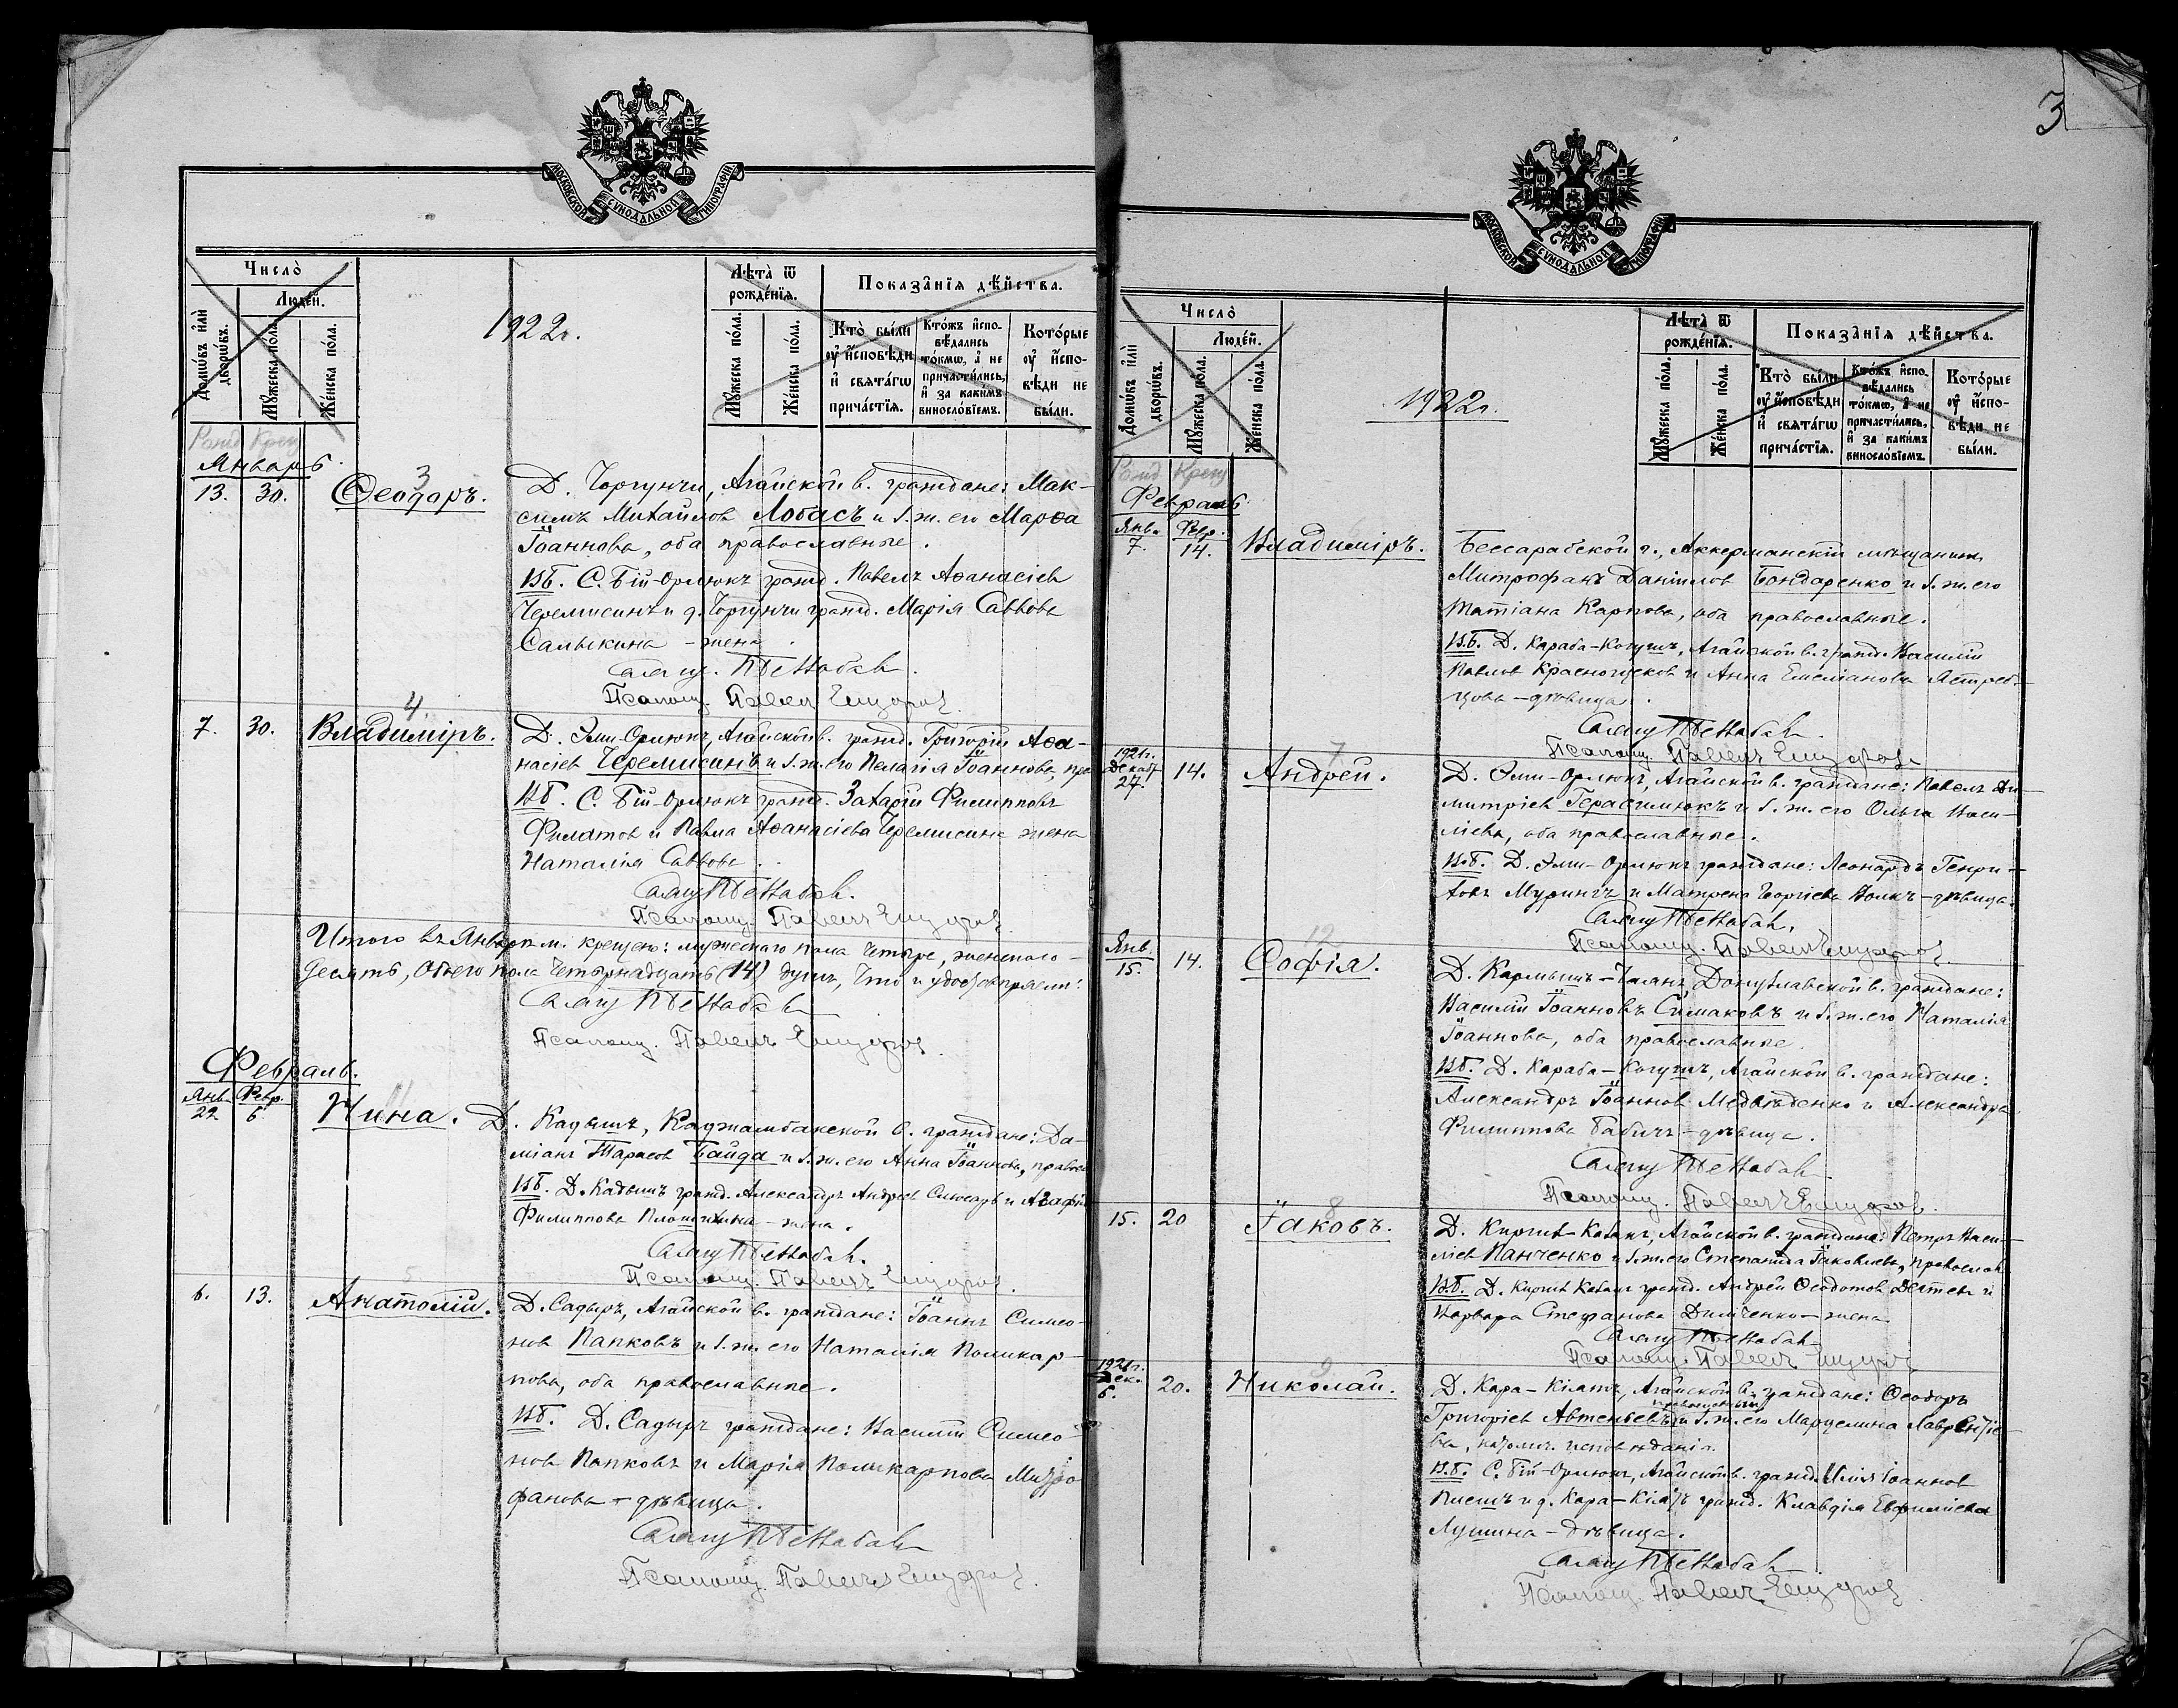 МОСКОВСКОЙ СУНОДАЛЬНОЙ ТИПОГРАФІИ
Число̀
Людей.
Домѡвъ и҆лѝ дворѡвъ.
Мꙋжеска по́ла.
Же́нска по́ла.
1922 г.
Лѣта̀ ѿ рожде́нїѧ.
Мꙋжеска по́ла.
Же́нска по́ла.
Показа̑нїѧ дѣ́йства.
Кто̀ бы́ли ᲂу҆ и҆сповѣди и҆ свѧта́гѡ прича́стїѧ.
Кто́жъ и҆спо-вѣ́дались то́кмѡ, а҆ не причасти́лись, и҆ за каки́мъ винносло́вїемъ.
Кото́рые ᲂу҆ и҆спо-вѣди не бы́ли.
Рожд Крещ
Январь.
13. 30.
3
Ѳеодоръ.
Д. Чоргунчи, Агайской в. граждане: Мак-
симъ Михайлов Лобасъ и з. ж. его Марѳа
Іоаннова, оба православные.
Вб. С. Бій-Орлюкъ гражд. Павелъ Аѳанасіев
Черемисинъ и д. Чоргунчи гражд. Марія Саввова
Салыкина - жена.
Псаломщ. Павелъ
7. 30.
4.
Владиміръ.
Д. Эли-Орлюкъ, Агайской в. гражд. Григорій Аѳа-
насіев Черемисинъ и з. ж. его Пелагія Іоаннова, пра
Вб. С. Бій-Орлюкъ гражд. Захарій Филипповъ
Филатов и Павла Аѳанасіева Черемисина жена
Наталія Саввова.
Псаломщ. Павелъ
Итого въ Январѣ м. крещено: мужескаго пола четыре, женскаго -
десять, обоего пола четырнадцать (14) душъ, что и удостовѣряемъ:
Псаломщ. Павелъ
Февраль.
Янв. 22 Февр. 6
Нина.
Д. Кадышъ, Каджамбакской в. граждане: Да-
міанъ Тарасов Байда и з. ж. его Анна Іоаннова, правосл
Вб. Д. Кадышъ гражд. Александръ Андреев и Агафія
Филиппова - жена.
Псаломщ. Павелъ
6. 13.
5
Анатолій.
Д. Садыръ, Агайской в. граждане: Іоаннъ Симео-
нов Папковъ и з. ж. его Наталія Поликар-
пова, оба православные.
Вб. Д. Садыръ граждане: Василій Симео-
нов Папковъ и Марія Поликарпова Митро
фанова - дѣвица.
Псаломщ. Павелъ
3
МОСКОВСКОЙ СУНОДАЛЬНОЙ ТИПОГРАФІИ
Число̀
Людей.
Домѡвъ и҆лѝ дворѡвъ.
Мꙋжеска по́ла.
Же́нска по́ла.
1922 г.
Лѣта̀ ѿ рожде́нїѧ.
Мꙋжеска по́ла.
Же́нска по́ла.
Показа̑нїѧ дѣ́йства.
Кто̀ бы́ли ᲂу҆ и҆сповѣди и҆ свѧта́гѡ прича́стїѧ.
Кто́жъ и҆спо-вѣ́дались то́кмѡ, а҆ не причасти́лись, и҆ за каки́мъ винносло́вїемъ.
Кото́рые ᲂу҆ и҆спо-вѣди не бы́ли.
Рожд Крещ
Февраль
Янв. 7. Февр. 14.
Владиміръ.
Бессарабской г., Аккерманскій мѣщанинъ
Митрофанъ Даніилов Бондаренко и з. ж. его
Татіана Карпова, оба православные.
Вб. Д. Караба-Когушъ, Агайской в. гражд. Василій
Павлов Красногцеков и Анна Емеліанова Ястреб-
цова - дѣвица.
Псаломщ. Павелъ
1921 г. Декаб. 27. 14.
7
Андрей.
Д. Эли-Орлюкъ, Агайской в. граждане: Павелъ Ди-
митріев Герасимюкъ и з. ж. его Ольга Васи-
ліева, оба православные.
Вб. Д. Эли-Орлюкъ граждане: Леонардъ Генри-
ховъ Мурингъ и Матрена Георгіева Волкъ - дѣвица.
Псаломщ. Павелъ
Янв. 15. 14.
12
Софія.
Д. Кармышъ-Чаланъ, Донузлавской в. граждане:
Василій Іоанновъ Симаковъ и з. ж. его Наталія
Іоаннова, оба православные.
Вб. Д. Караба-Когушъ, Агайской в. граждане:
Александръ Іоаннов Медвѣденко и Александра
Филиппова Бабичъ - дѣвица.
Псаломщ. Павелъ
15. 20
8
Іаковъ.
Д. Киргиз-Казакъ, Агайской в. граждане: Петръ Васи-
ліев Панченко и з. ж. его Степанида Іаковлева, православ
Вб. Д. Киргиз Казакъ гражд. Андрей Ѳеодотов и
Варвара Стефанова Димченко - жена.
Псаломщ. Павелъ
1921 г. Дек. 6. 20.
9
Николай.
Д. Кара-Кіятъ, Агайской в. граждане: Ѳеодоръ
Григоріев Автеньевъ православный и з. ж. его Марцелина Лаврентіе-
ва, католич. исповѣданія.
Вб. С. Бій-Орлюкъ, Агайской в. гражд. Илія Іоаннов
и д. Кара-Кіятъ гражд. Клавдія Евфиміева
Лушина - дѣвица.
Псаломщ. Павелъ